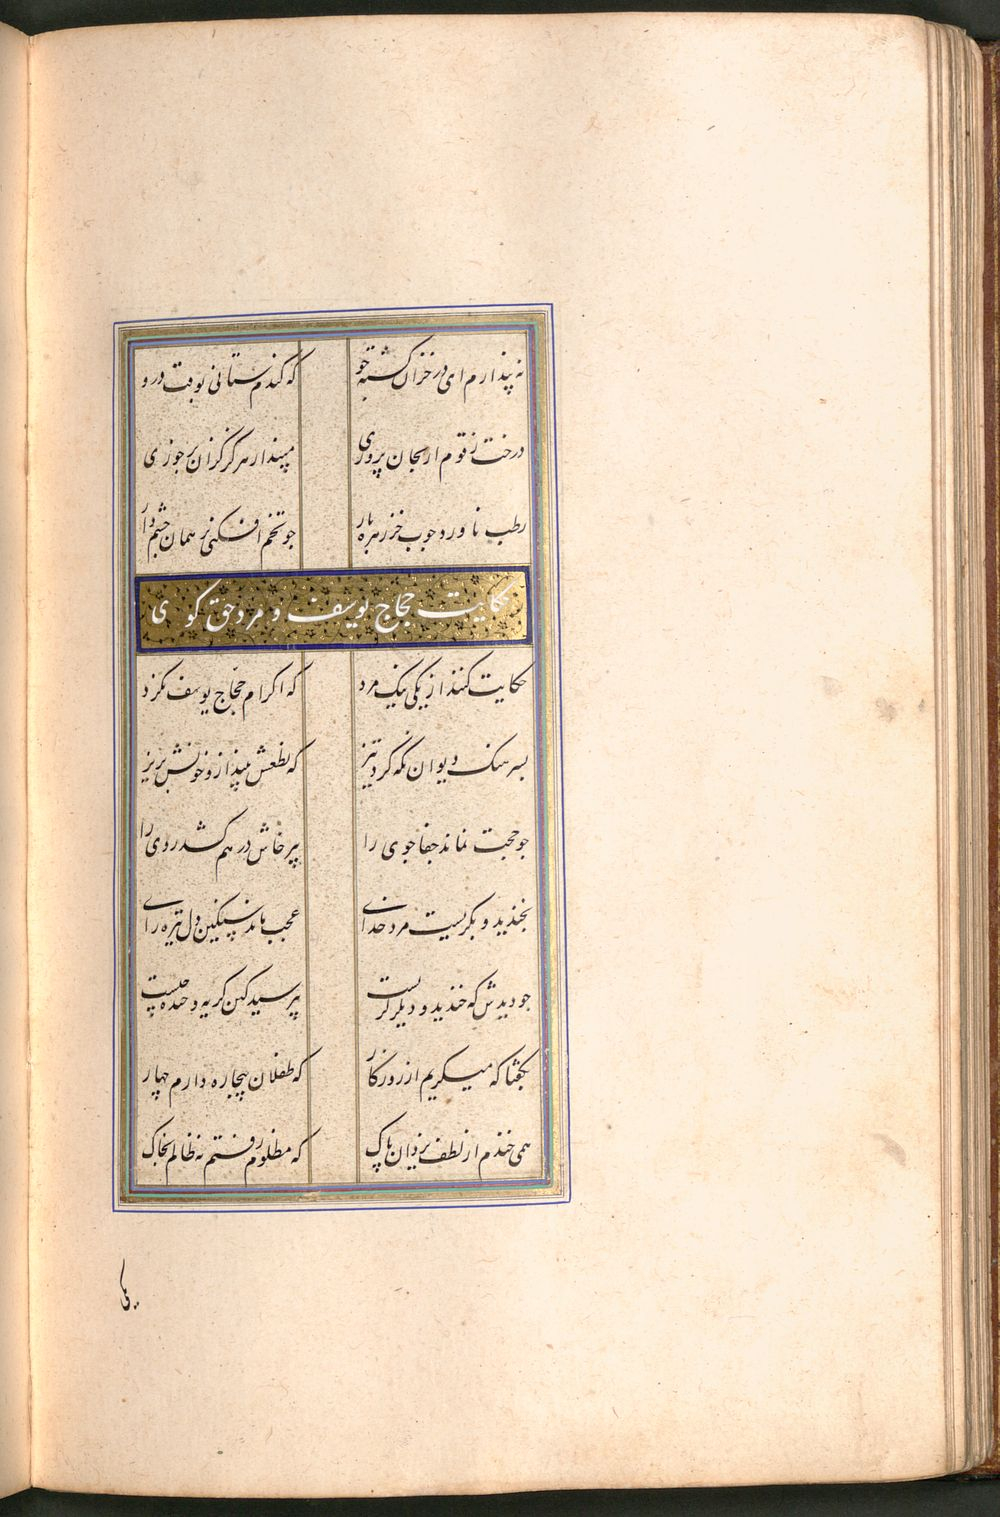 نه پندارم ای در خزان کشته جو که گندم ستانی بوقت درو
درخت زقوم ار بجان پروری مپندار هرگز کزان بر خوری
رطب ناورد چوب خرزهره بار جو تخم افکنی بر همان چشم دار
حکایت حجاج یوسف و مرد حق کوی
حکایت کنند از یکی نیک مرد که اکرام حجاج یوسف نکرد
بسرهنک دیوان نکه کرد تیز که نطعش بینداز و خونش بریز
جو حجت نماند جفا جوی را بپرخاش در هم کشد روی را
بخندید و بکریست مرد خدای عجب ماند سنکین دل تیره رای
جو دیدش که خندید و دیکر کریست بپرسید کین کریه و خنده چیست
بکفتا که میکریم از روزکار که طفلان بیچاره دارم چهار
همی خندم از لطف یزدان پاک که مظلوم رفتم نه ظالم بخاک
یکی